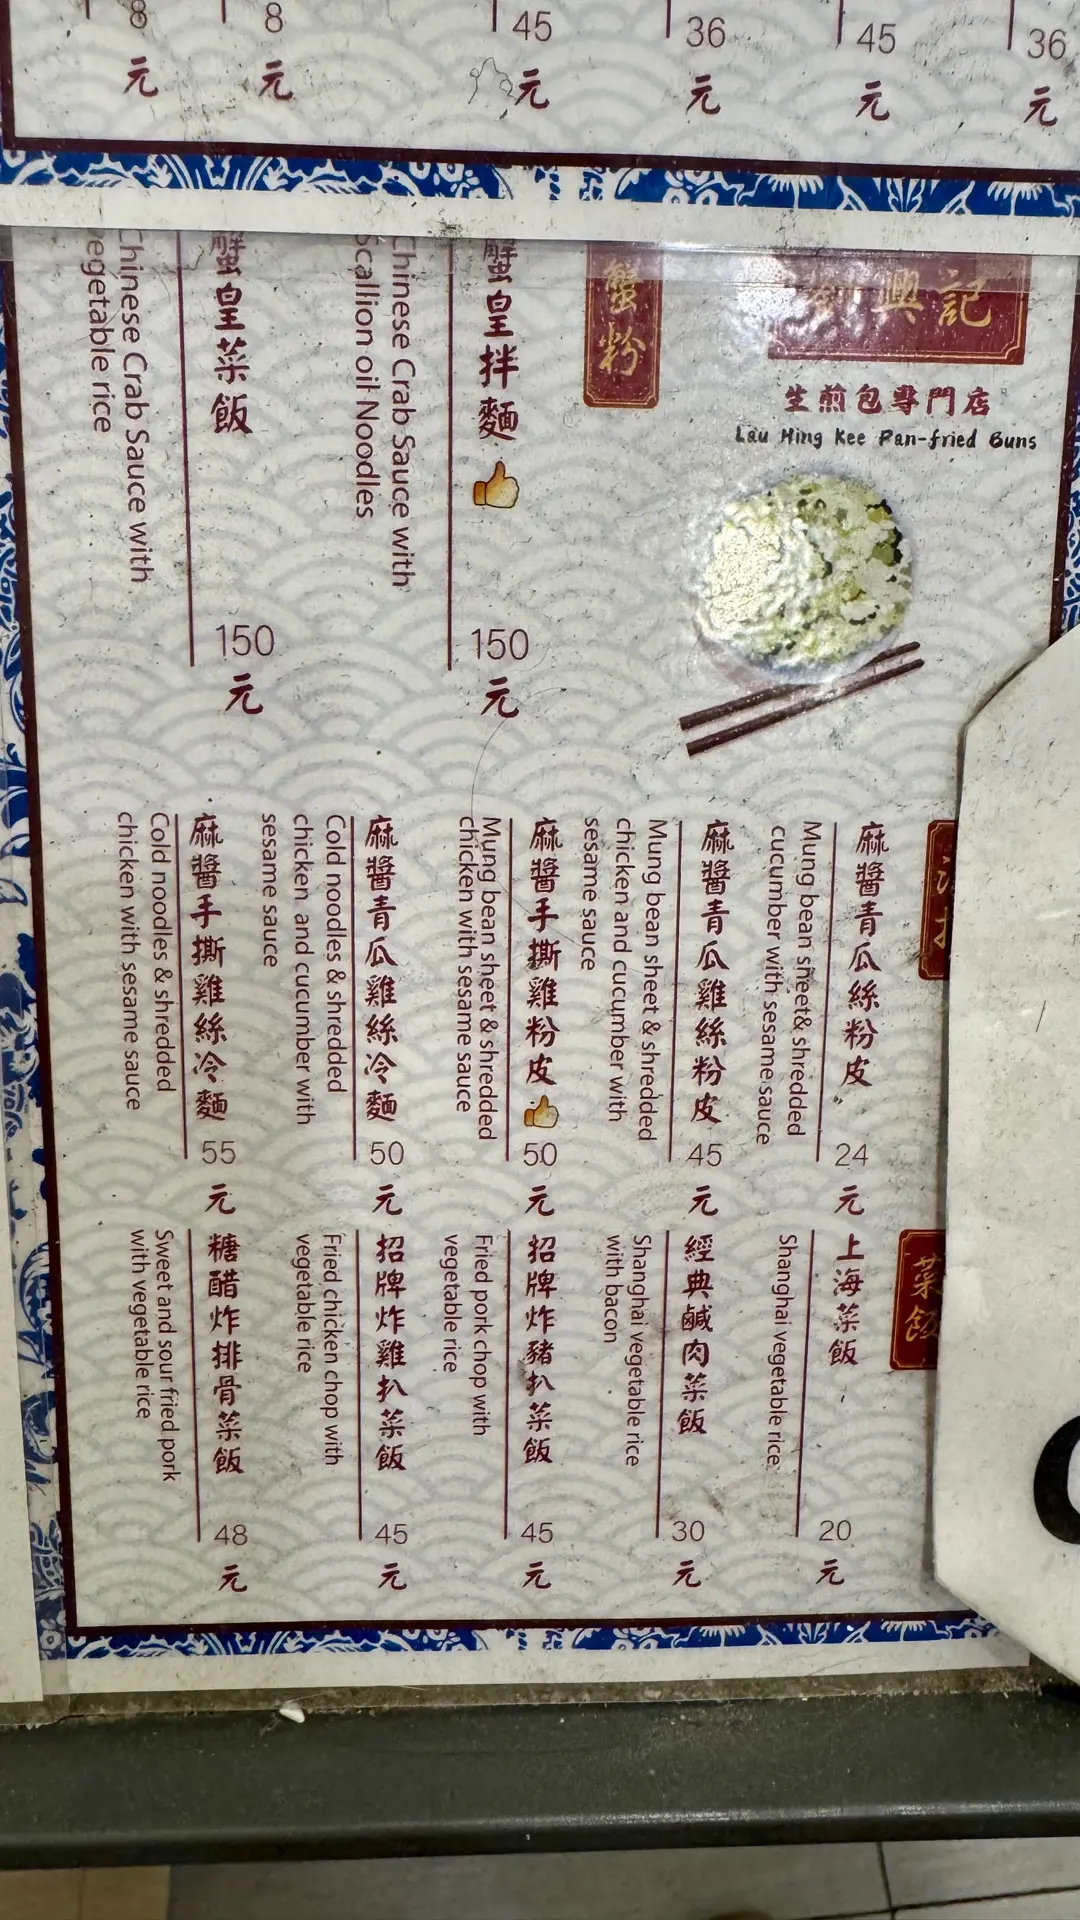 8
元
8
元
45
元
36
元
45
元
36
元
興記
生煎包專門店
Lau Hing Kee Pan-fried Buns
蟹粉
蟹皇拌麵
Chinese Crab Sauce with
Scallion oil Noodles
150
元
蟹皇菜飯
Chinese Crab Sauce with
vegetable rice
150
元
麻醬青瓜絲粉皮
Mung bean sheet& shredded
cucumber with sesame sauce
24
元
麻醬青瓜雞絲粉皮
Mung bean sheet & shredded
chicken and cucumber with
sesame sauce
45
元
麻醬手撕雞粉皮
Mung bean sheet & shredded
chicken with sesame sauce
50
元
麻醬青瓜雞絲冷麵
Cold noodles & shredded
chicken and cucumber with
sesame sauce
50
元
麻醬手撕雞絲冷麵
Cold noodles & shredded
chicken with sesame sauce
55
元
菜飯
上海菜飯
Shanghai vegetable rice
20
元
經典鹹肉菜飯
Shanghai vegetable rice
with bacon
30
元
招牌炸豬扒菜飯
Fried pork chop with
vegetable rice
45
元
招牌炸雞扒菜飯
Fried chicken chop with
vegetable rice
45
元
糖醋炸排骨菜飯
Sweet and sour fried pork
with vegetable rice
48
元